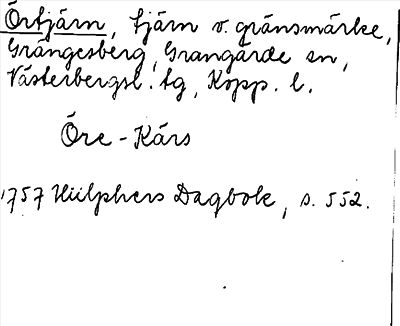 Örtjärn, tjärn o. gränsmärke,
Grängesberg, Grangärde sn,
Västerbergsl. tg, Kopp. l.
Öre-Kärs
1757 Hülphers Dagbok, s. 552.